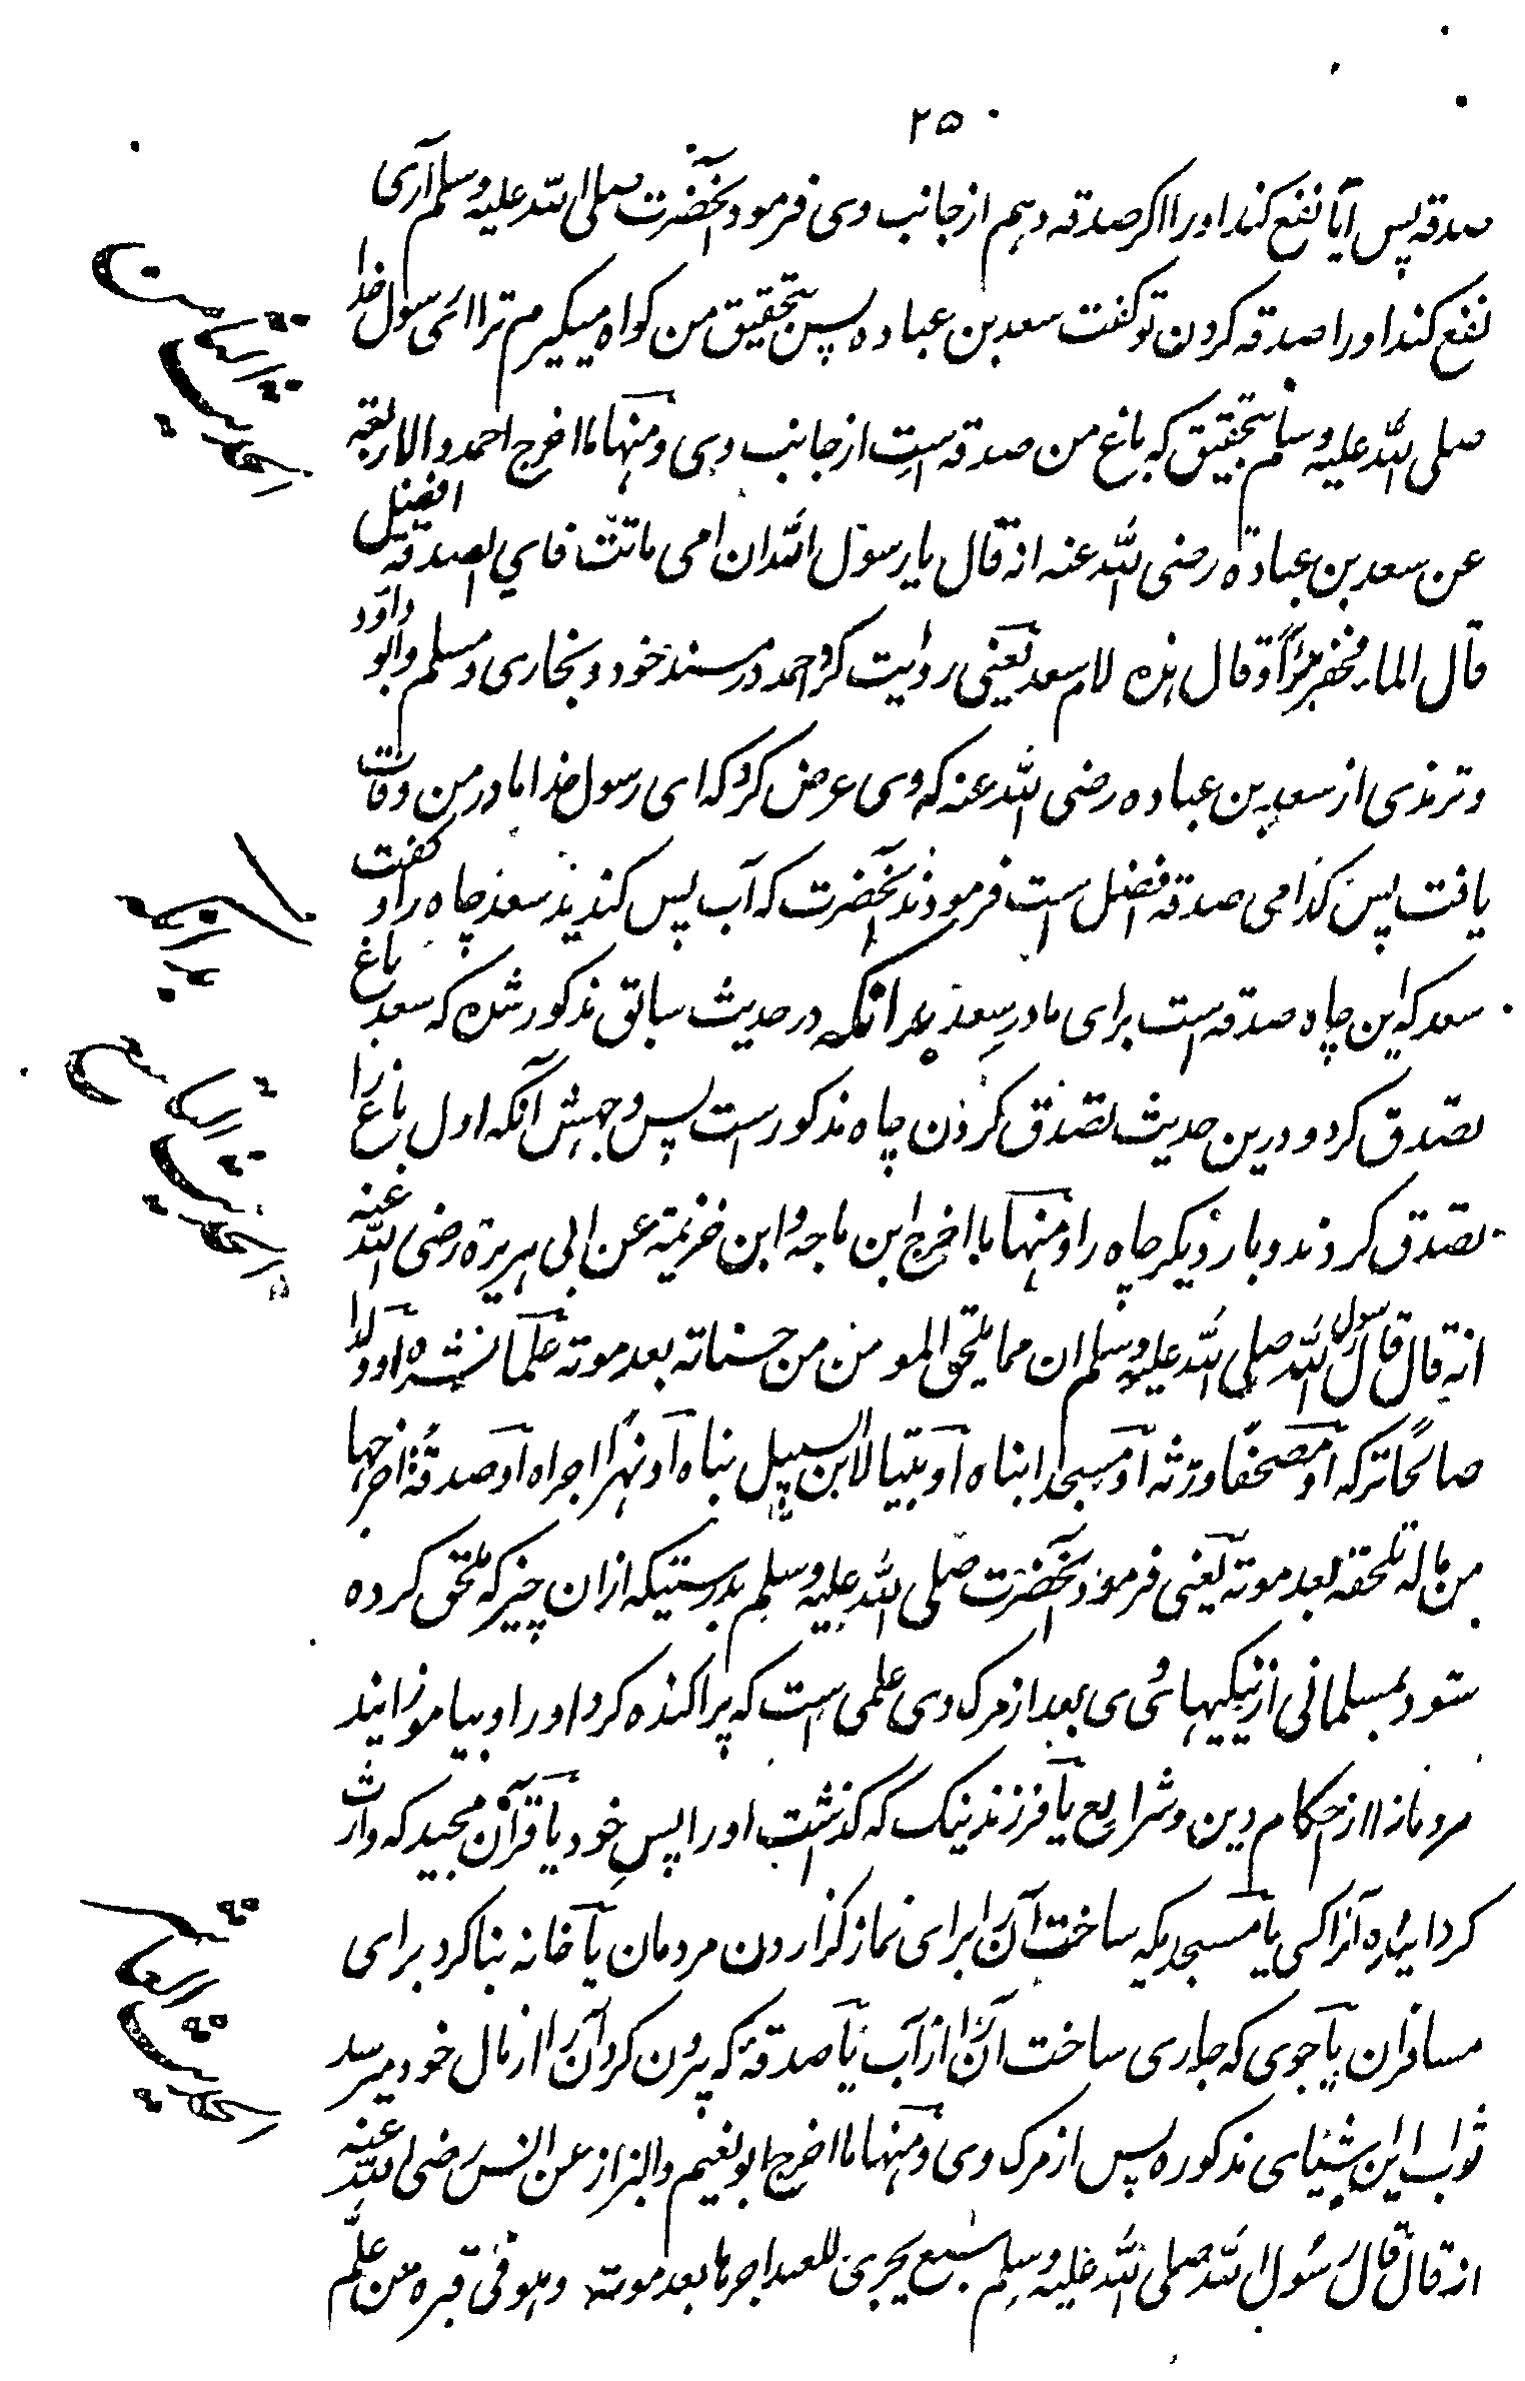 ۲۵۰
صدقه پس آیا نفع کند اورا اکر صدقه دهم از جانب وی فرمود آنحضرت صلی الله علیه وسلم آری
نفع کند اورا صدقه کردن تو کفت سعد بن عباده پس بتحقیق من کواه میکیرم ترا ای رسول خدا
صلی الله علیه وسلم بتحقیق که باغ من صدقه است از جانب وی ومنها ما اخرج احمد والاربعة
عن سعد بن عبادة رضی الله عنه انه قال یا رسول الله ان امی ماتت فای الصدقة افضل
قال الماء فحفر بئرًا وقال هذه لام سعد یعنی روایت کرد احمد در مسند خود و بخاری و مسلم وابو داود
وترمذی از سعد بن عباده رضی الله عنه که وی عرض کرد که ای رسول خدا مادر من وفات
یافت پس کدامی صدقه افضل است فرمودند آنحضرت که آب پس کندید سعد چاه را و کفت
سعد که این چاه صدقه است برای مادر سعد بدانکه در حدیث سابق مذکور شده که سعد باغ
تصدق کرد و درین حدیث تصدق کردن چاه مذکور است پس وجهش آنکه اول باغ را
تصدق کردند و بار دیکر چاه را ومنها ما اخرج ابن ماجه وابن خزیمة عن ابی هریرة رضی الله عنه
انه قال قال رسول الله صلی الله علیه وسلم ان مما یلحق المومن من حسناته بعد موته علما نشره او ولدا
صالحًا ترکه او مصحفًا ورثه او مسجدا بناه او بیتا لابن السبیل بناه او نهرًا اجراه او صدقةً اخرجها
من ماله تلحقه بعد موته یعنی فرمود آنحضرت صلی الله علیه وسلم بدرستیکه ازان چیز که ملحق کرده
شود بمسلمانی از نیکیهای وی بعد از مرک وی علمی است که پراکنده کرد اورا و بیاموزایند
مردمانرا از احکام دین وشرایع یا فرزند نیک که کذشت اورا پس خود یا قرآن مجید که وارث
کردانیده آنرا کسی یا مسجدیکه ساخت آن را برای نماز کزاردن مردمان یا خانه بنا کرد برای
مسافران یا جوی که جاری ساخت آن را از آب یا صدقه که بیرون کرد آن را از مال خود میرسد
ثواب این اشیای مذکوره پس از مرک وی ومنها ما اخرج ابو نعیم والبزاز عن انس رضی الله عنه
انه قال قال رسول الله صلی الله علیه وسلم سبع یجری للعبد اجرها بعد موته وهو فی قبره من علّم